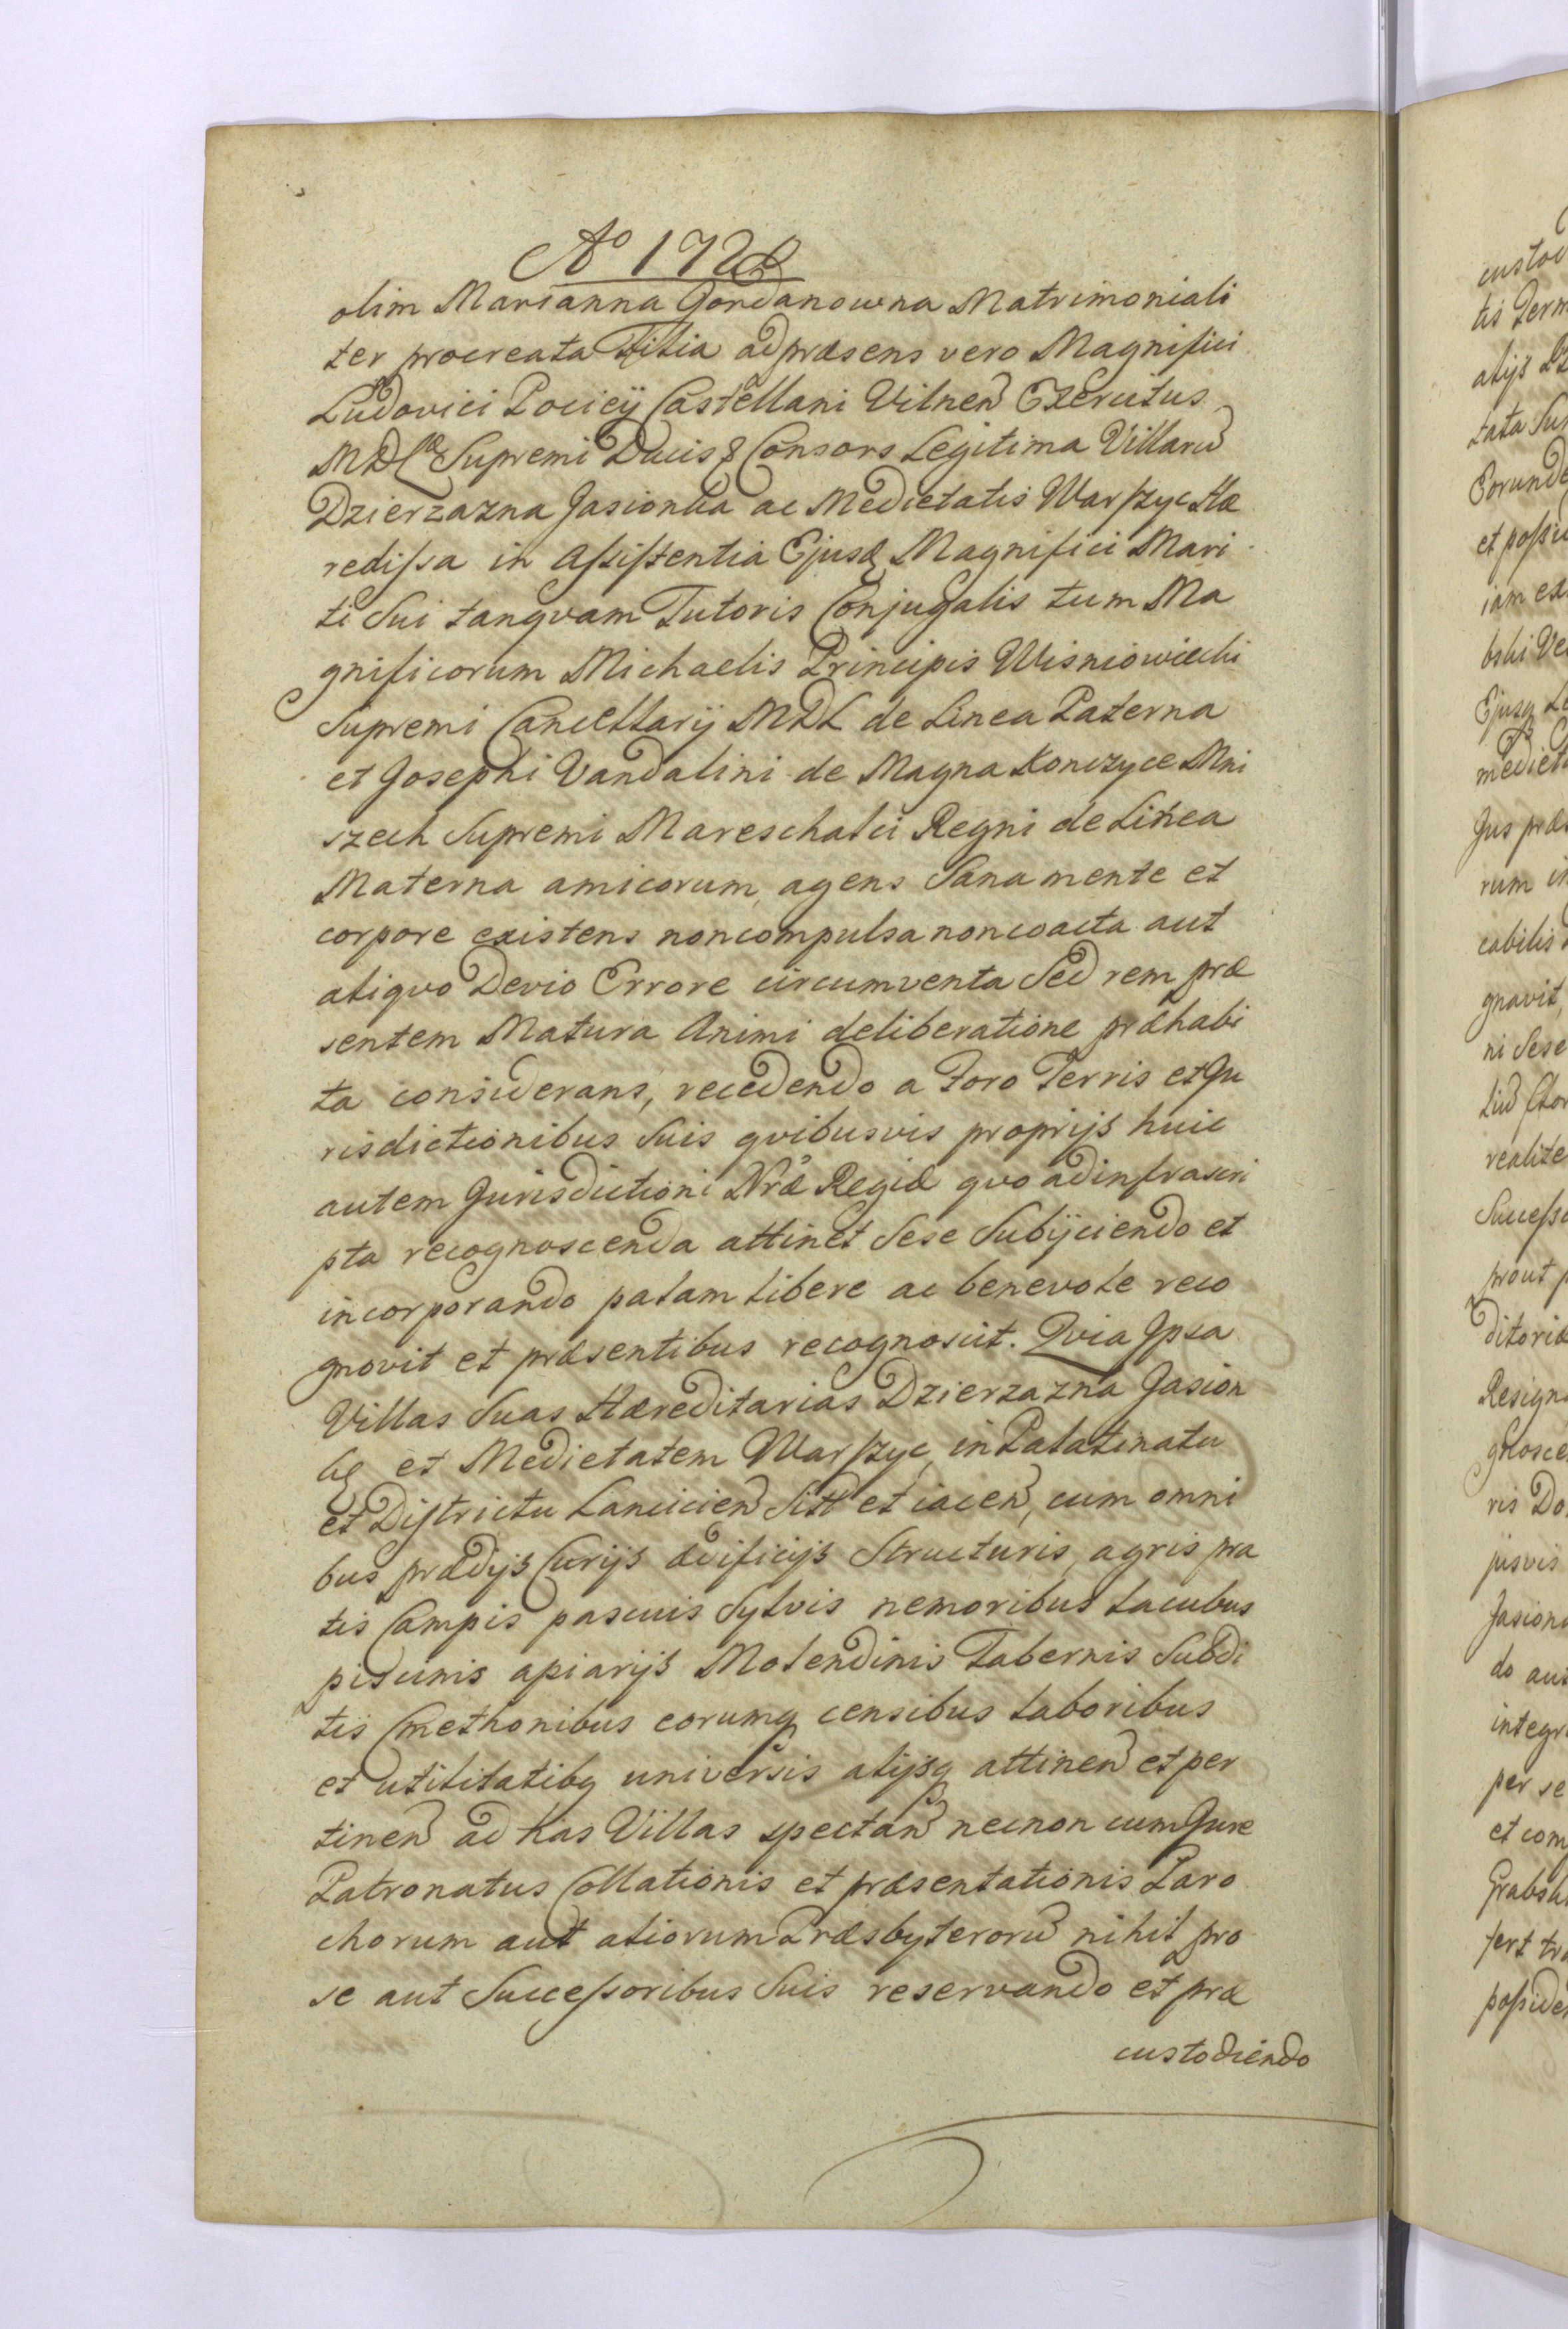 Aº 172
olim Marianna Gordanowna Matrimoniali
ter procreata Filia ad præsens vero Magnifici
Ludovici Pociey Castellani Vilnen Exercitus
MDL Supremi Ducis & Consors Legitima Villarū
Dzierzazna Jasionka ac Medietatis Warszyc Hæ
redissa in Assistentia Ejusq Magnifici Mari
ti Sui tanqvam Tutoris Conjugalis tum Ma
gnificorum Michaelis Principis Wisniowiecki
Supremi Cancellarij MDL de Linea Paterna
et Josephi Vandalini de Magna Konczyce Mni
szech Supremi Mareschalci Regni de Linea
Materna amicorum, agens Sana mente et
corpore existens non compulsa non coacta aut
aliqvo Devio Errore circumventa Sed rem præ
sentem Matura Animi deliberatione præhabi
ta considerans, recedendo a Foro Terris et Ju
risdictionibus Suis qvibusvis proprijs huic
autem Jurisdictioni Nræ Regiæ qvo ad infrascri
pta recognoscenda attinet Sese Subijciendo et
incorporando palam libere ac benevole reco
gnovit et præsentibus recognoscit. Qvia Ipsa
Villas Suas Hæreditarias Dzierzazna Jasion
kę et Medietatem Warszyc, in Palatinatu
et Districtu Lancicien Sitt et iacen, cum omni
bus prædijs Curijs ædificijs Structuris, agris pra
tis Campis pascuis Sylvis nemoribus lacubus
piscinis apiarijs Molendinis Tabernis Subdi
tis Cmethonibus eorumq censibus laboribus
et utilitatibq universis alijsq attinen et per
tinen ad has Villas spectan necnon cum Jure
Patronatus Collationis et præsentationis Paro
chorum aut aliorum Præsbyterorū nihil pro
se aut Successoribus Suis reservando et præ
custodiendo